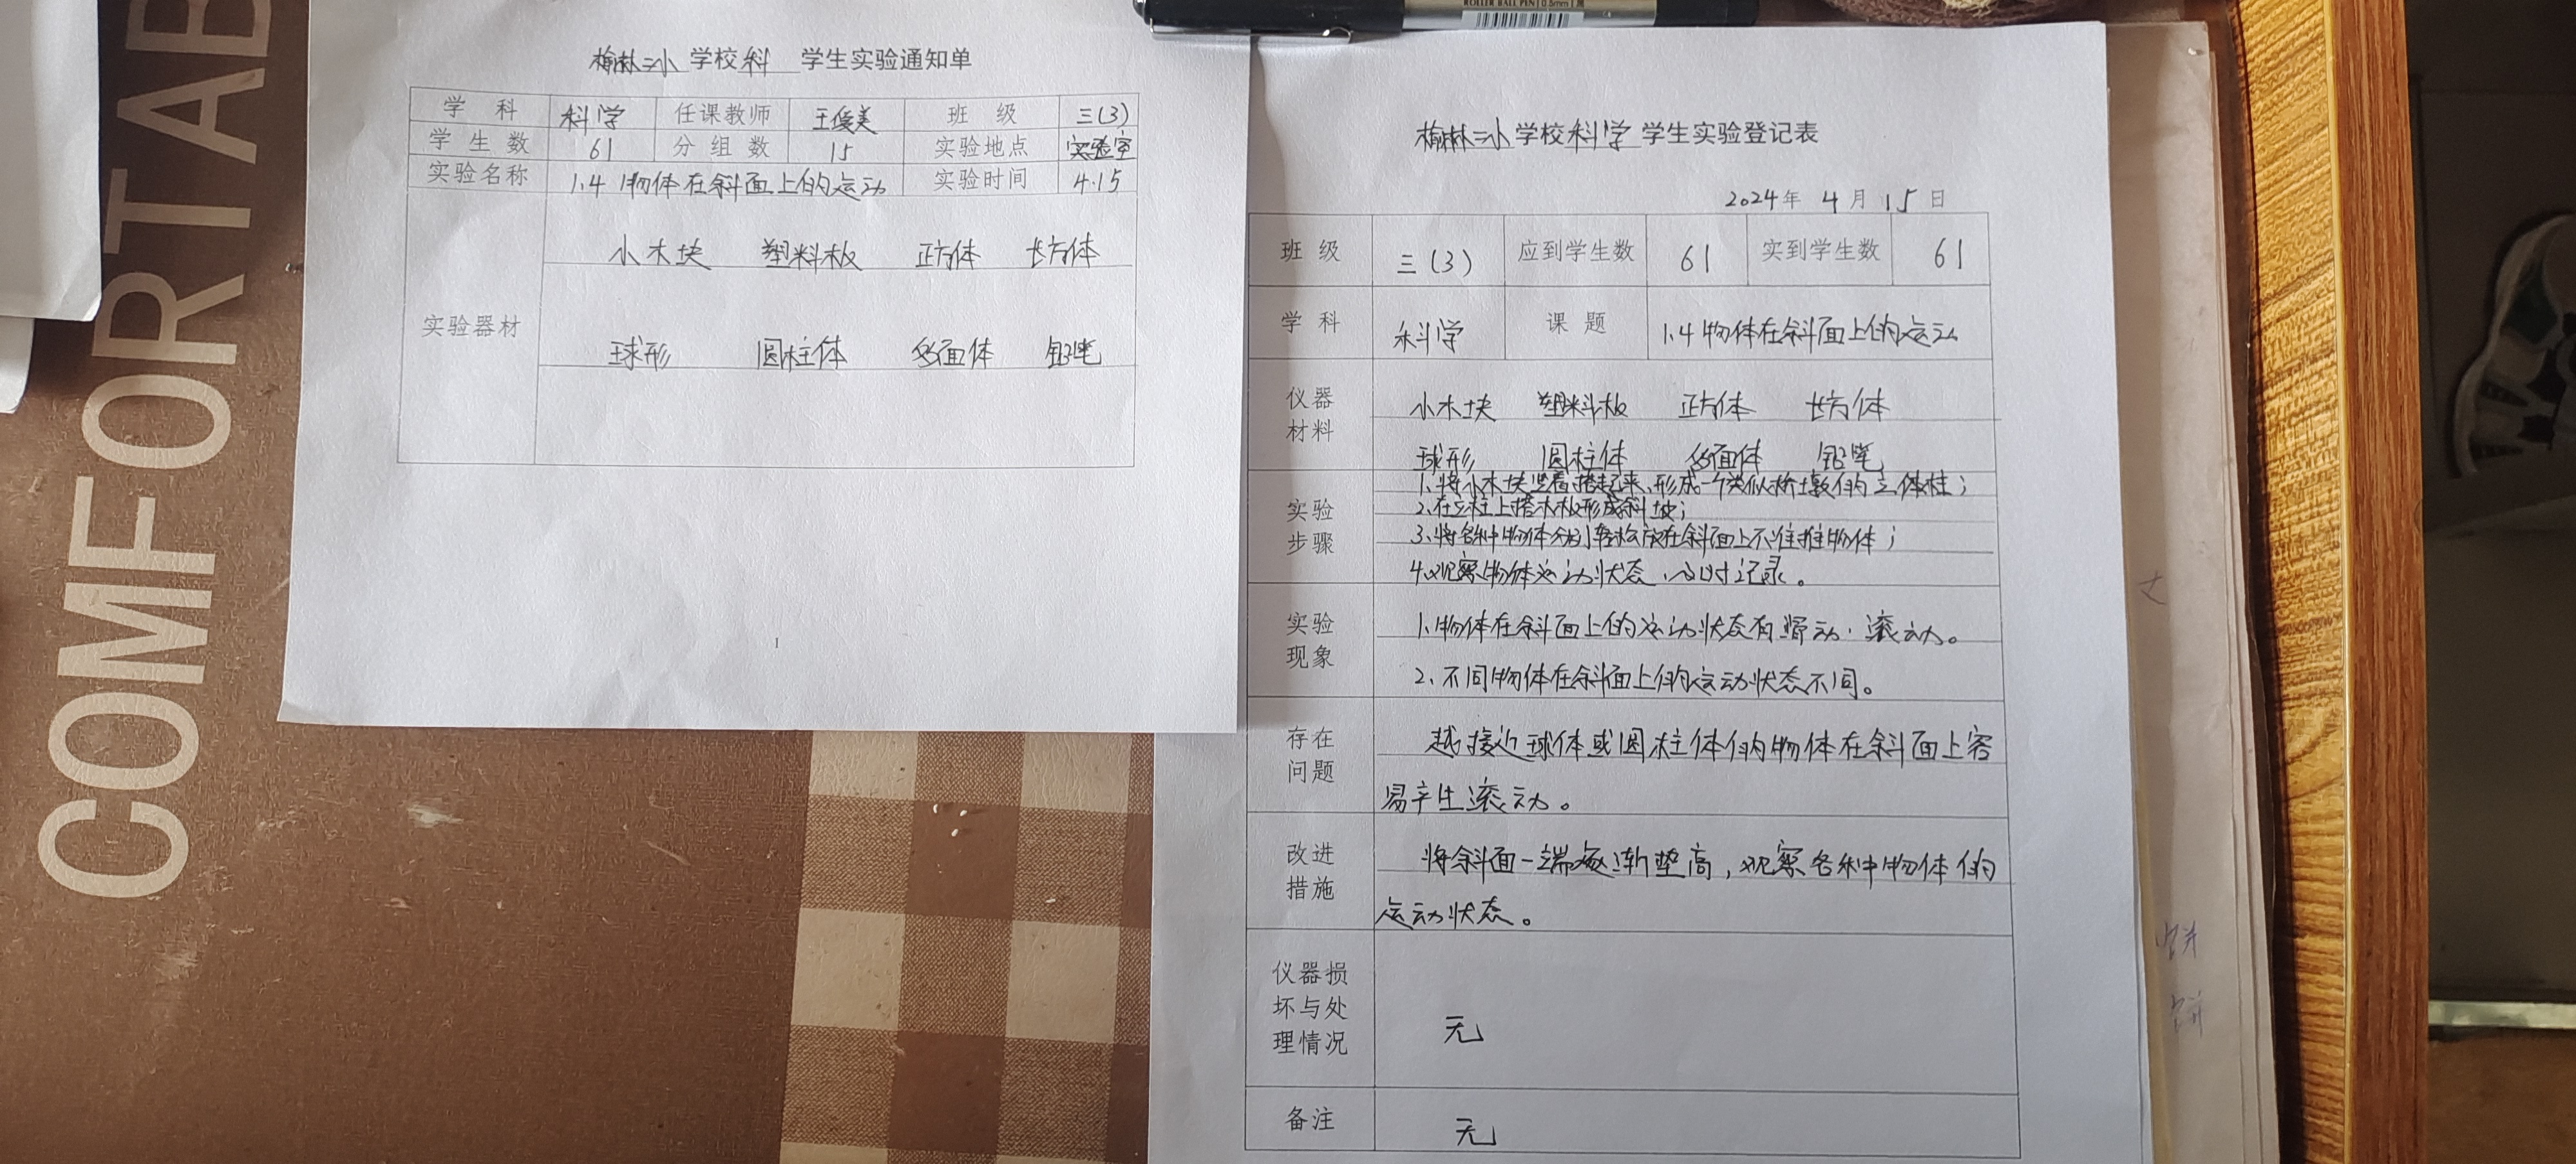 COMFORTAB
ROLLER BALL PEN 0.5mm
榆林三小 学校 科 学生实验通知单
学 科 科学 任课教师 王俊美 班 级 三(3)
学 生 数 61 分 组 数 15 实验地点 实验室
实验名称 1.4 物体在斜面上的运动 实验时间 4.15
实验器材
小木块 塑料板 正方体 长方体
球形 圆柱体 多面体 铅笔
1
榆林三小 学校 科学 学生实验登记表
2024年 4月 15日
班 级 三(3) 应到学生数 61 实到学生数 61
学 科 科学 课 题 1.4 物体在斜面上的运动
仪器材料
小木块 塑料板 正方体 长方体
球形 圆柱体 多面体 铅笔
实验步骤
1、将小木块竖着搭起来、形成一个类似桥墩的立体柱；
2、在立柱上搭木板形成斜坡；
3、将各种物体分别轻松放在斜面上不准推物体；
4、观察物体运动状态，及时记录。
实验现象
1、物体在斜面上的运动状态有滑动、滚动。
2、不同物体在斜面上的运动状态不同。
存在问题
越接近球体或圆柱体的物体在斜面上容
易产生滚动。
改进措施
将斜面一端逐渐垫高，观察各种物体的
运动状态。
仪器损坏与处理情况
无
备注 无